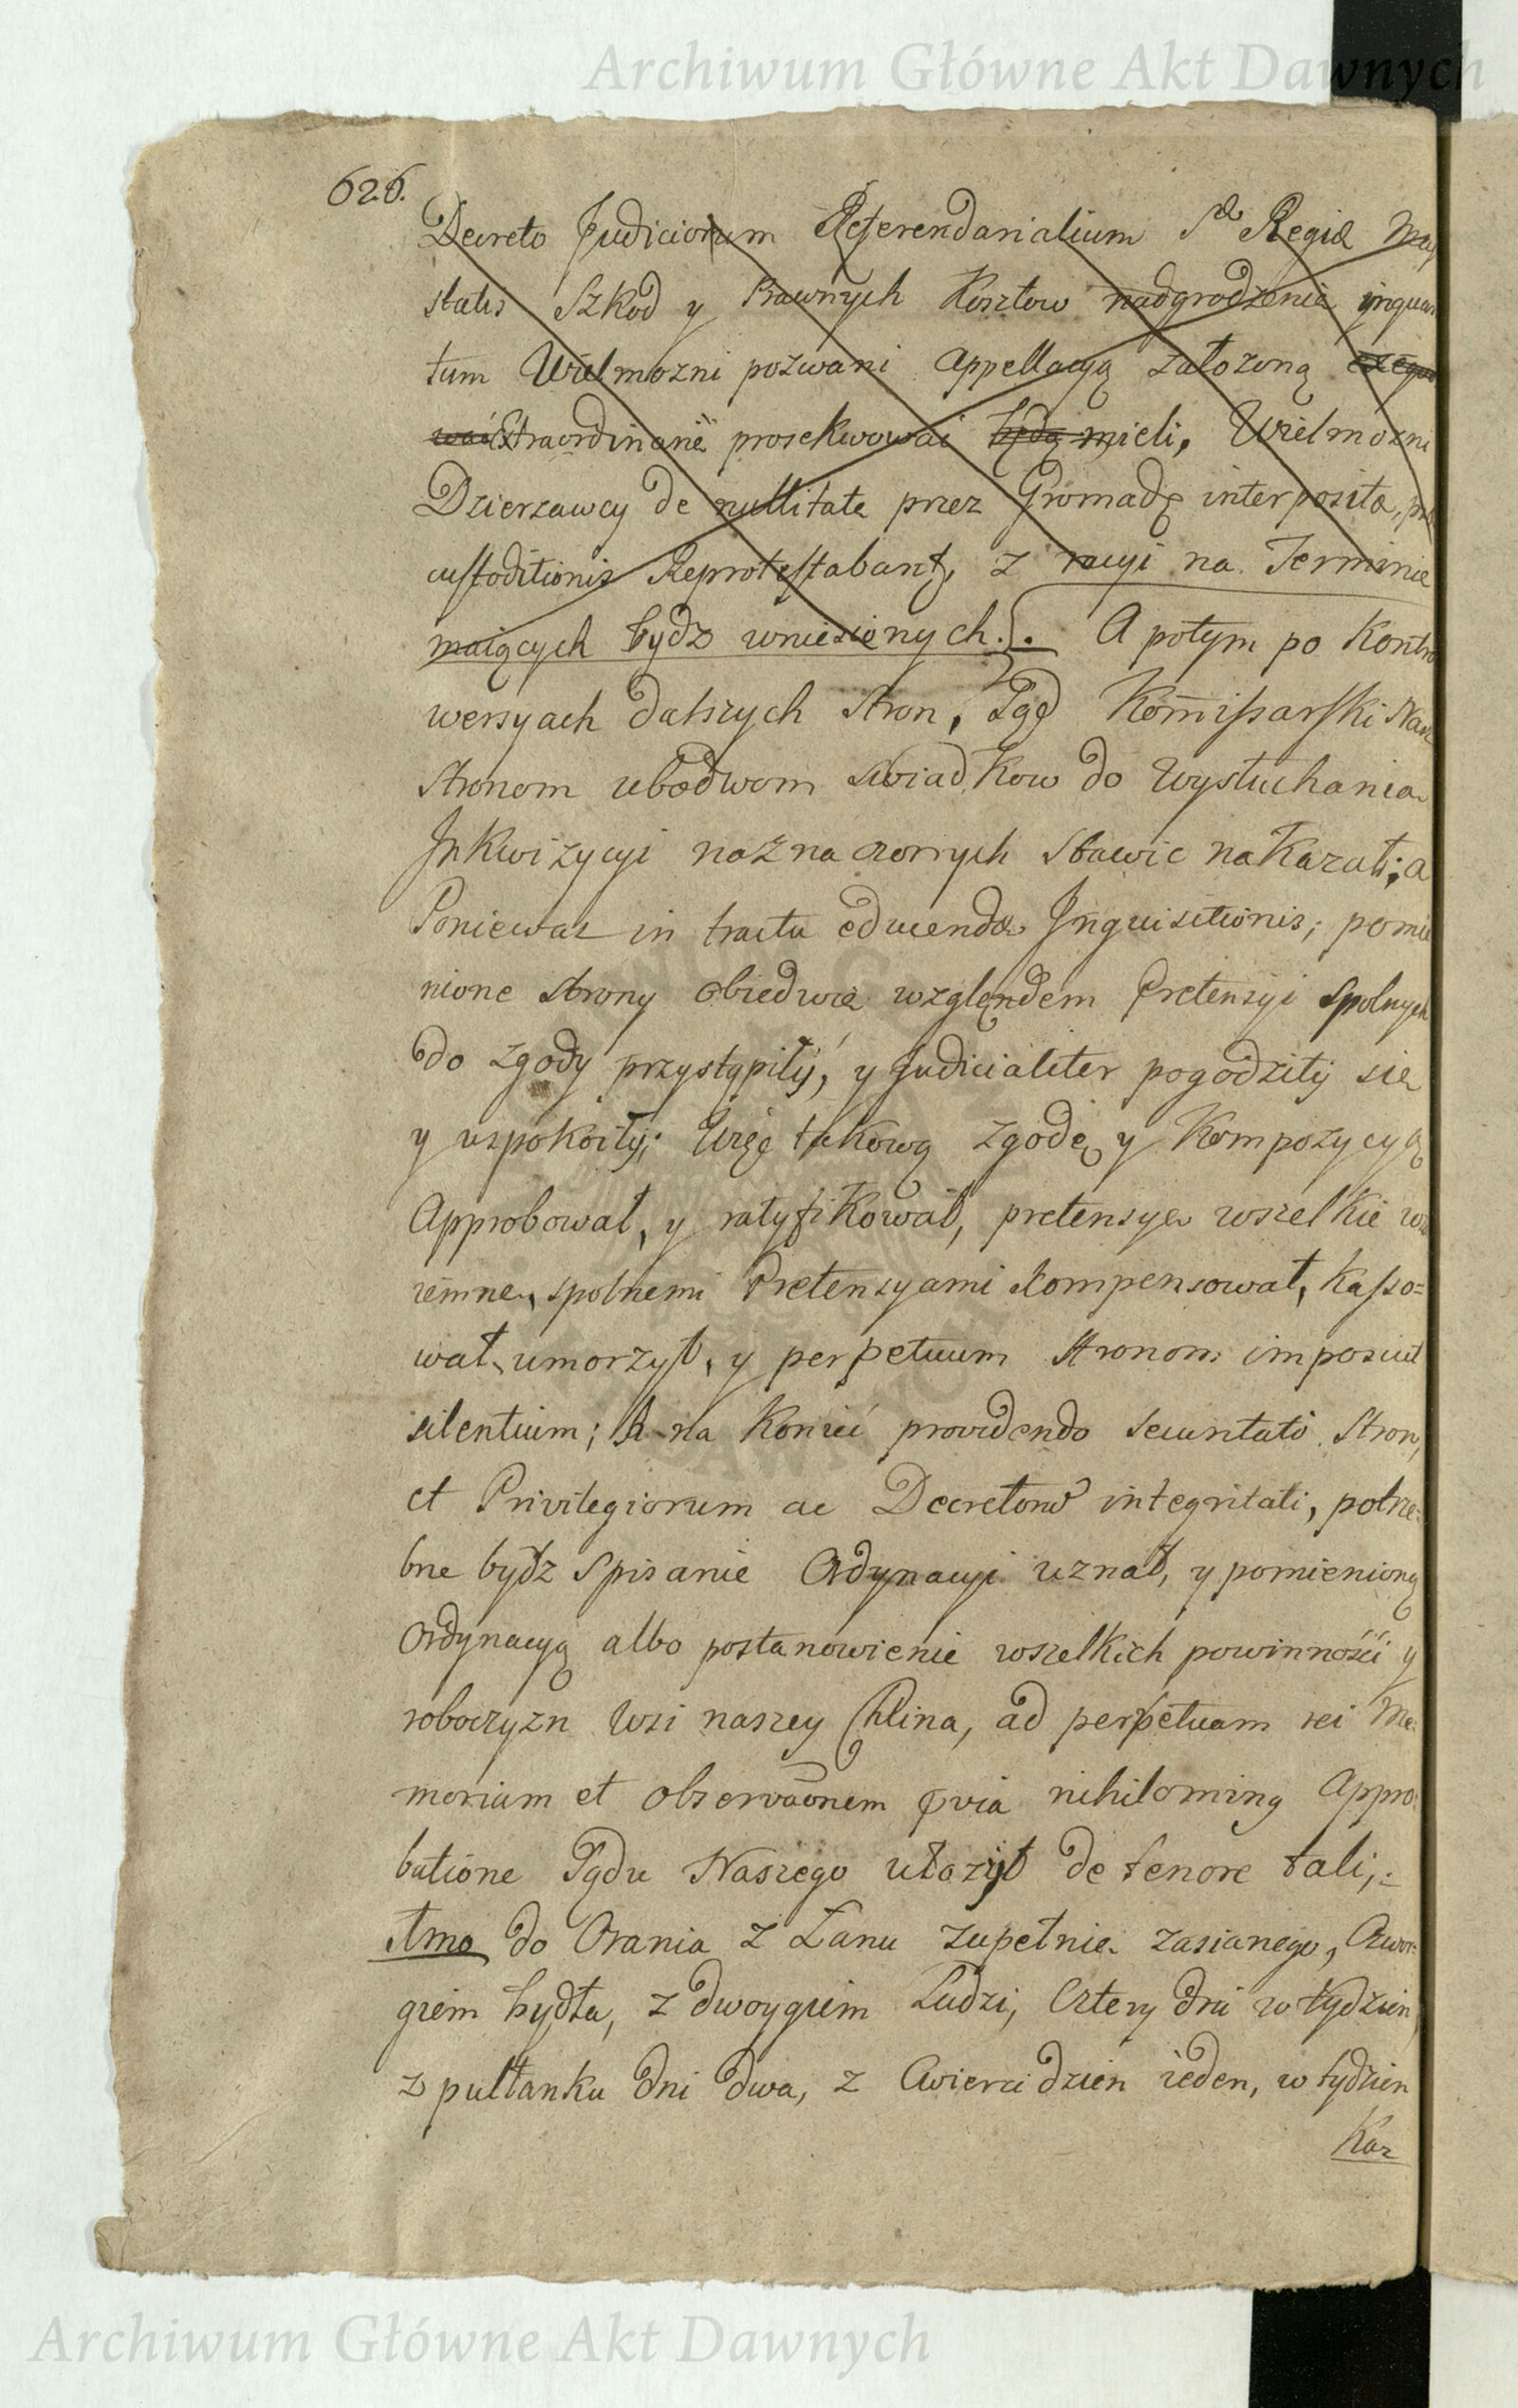 Archiwum Główne Akt Dawnych
626.
Decreto Judiciorum Referendarialium Sæ Regiæ Maj
statis Szkod y Prawnych Kosztow nadgrodzenia inquan
tum Wielmozni pozwani appellacyą załozoną
Extraordinarie prosekwować będą mieli, Wielmozni
Dzierzawcy de nullitate przez Gromadę interposita, præ
custoditionis Reprotestabant, z racyi na Terminie
maiących bydz wniesionych. A potym po Kontro
wersyach dalszych stron, Sąd Kommissarski Nasz
stronom ubodwom swiadkow do Wysłuchania
Jnkwizycyi naznaczonych stawic nakazał; a
Poniewaz in tractu educendæ Jnquisitionis; pomie
nione strony obiedwie względem Pretensyi spolnych
do zgody przystąpiły, y Judicialiter pogodziły się
y uspokoiły; Więc takową zgodę y Kompozycyą
Approbował, y ratyfikował, pretensye wszelkie wza
iemne, spolnemi Pretensyami kompensował, Kasso=
wał, umorzył, y perpetuum stronom imposuit
silentium; A na koniec providendo securitati Stron,
et Privilegiorum ac Decretorum integritati, potrze=
bne bydz spisanie Ordynacyi uznał, y pomienioną
Ordynacyą albo postanowienie wszelkich powinności y
roboczyzn Wsi naszey Chlina, ad perpetuam rei Me=
moriam et observaonem prvia nihilominq Appro=
batione Sądu Naszego ułozył de tenore tali;=
1mo do Orania z Łanu zupełnie zasianego, Czwor=
giem bydła, z dwoygiem Ludzi, Cztery dni w tydzien,
z pułłanku dni dwa, z Cwierci dzien ieden, w tydzien
Kaz
Archiwum Główne Akt Dawnych